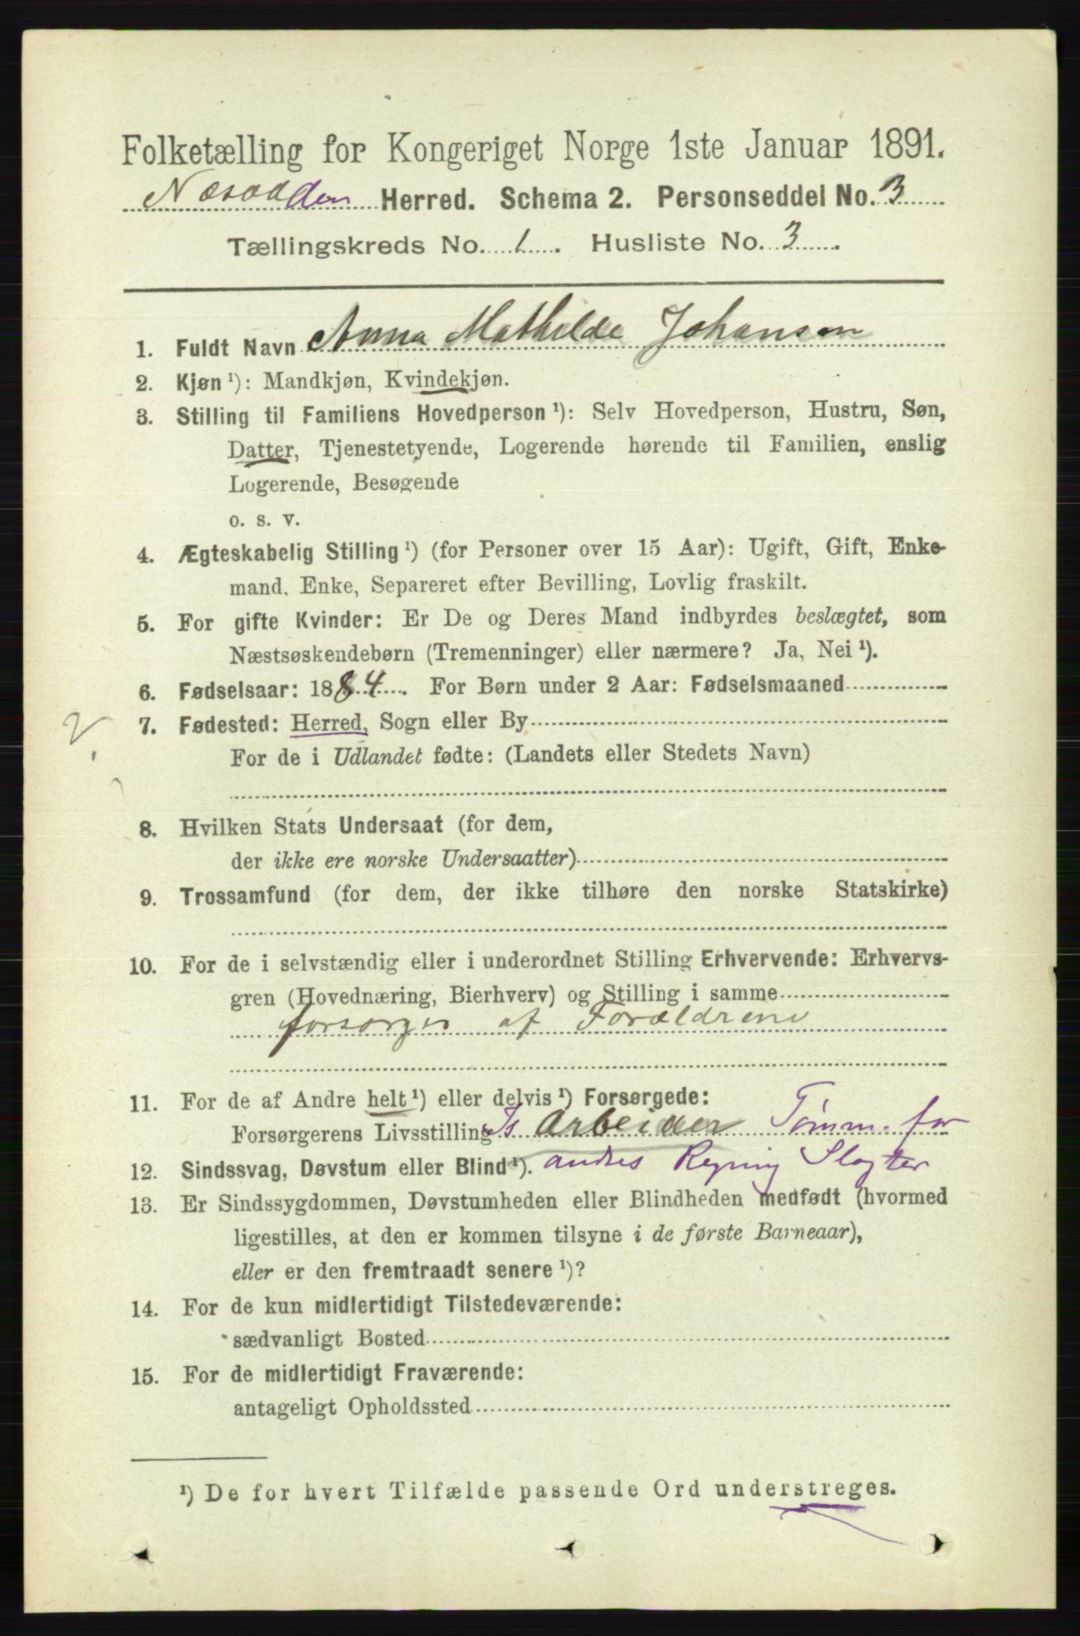 Folketælling for Kongeriget Norge 1ste Januar 1891.
Næsodden Herred. Schema 2. Personseddel No. 3
Tællingskreds No. 1. Husliste No. 3.
1. Fuldt Navn Anna Mathilde Johansen
2. Kjøn ¹): Mandkjøn, Kvindekjøn.
3. Stilling til Familiens Hovedperson ¹): Selv Hovedperson, Hustru, Søn,
Datter, Tjenestetyende, Logerende hørende til Familien, enslig
Logerende, Besøgende
o. s. v.
4. Ægteskabelig Stilling ¹) (for Personer over 15 Aar): Ugift, Gift, Enke-
mand, Enke, Separeret efter Bevilling, Lovlig fraskilt.
5. For gifte Kvinder: Er De og Deres Mand indbyrdes beslægtet, som
Næstsøskendebørn (Tremenninger) eller nærmere? Ja, Nei ¹).
6. Fødselsaar: 1884. For Børn under 2 Aar: Fødselsmaaned
2. 7. Fødested: Herred, Sogn eller By
For de i Udlandet fødte: (Landets eller Stedets Navn)
8. Hvilken Stats Undersaat (for dem,
der ikke ere norske Undersaatter)
9. Trossamfund (for dem, der ikke tilhøre den norske Statskirke)
10. For de i selvstændig eller i underordnet Stilling Erhvervende: Erhvervs-
gren (Hovednæring, Bierhverv) og Stilling i samme
forsørges af Forældrene
11. For de af Andre helt ¹) eller delvis ¹) Forsørgede:
Forsørgerens Livsstilling Is Arbeider Tømm. for
12. Sindssvag, Døvstum eller Blind ¹). andres Regning Slagter
13. Er Sindssygdommen, Døvstumheden eller Blindheden medfødt (hvormed
ligestilles, at den er kommen tilsyne i de første Barneaar),
eller er den fremtraadt senere ¹)?
14. For de kun midlertidigt Tilstedeværende:
sædvanligt Bosted
15. For de midlertidigt Fraværende:
antageligt Opholdssted
¹) De for hvert Tilfælde passende Ord understreges.